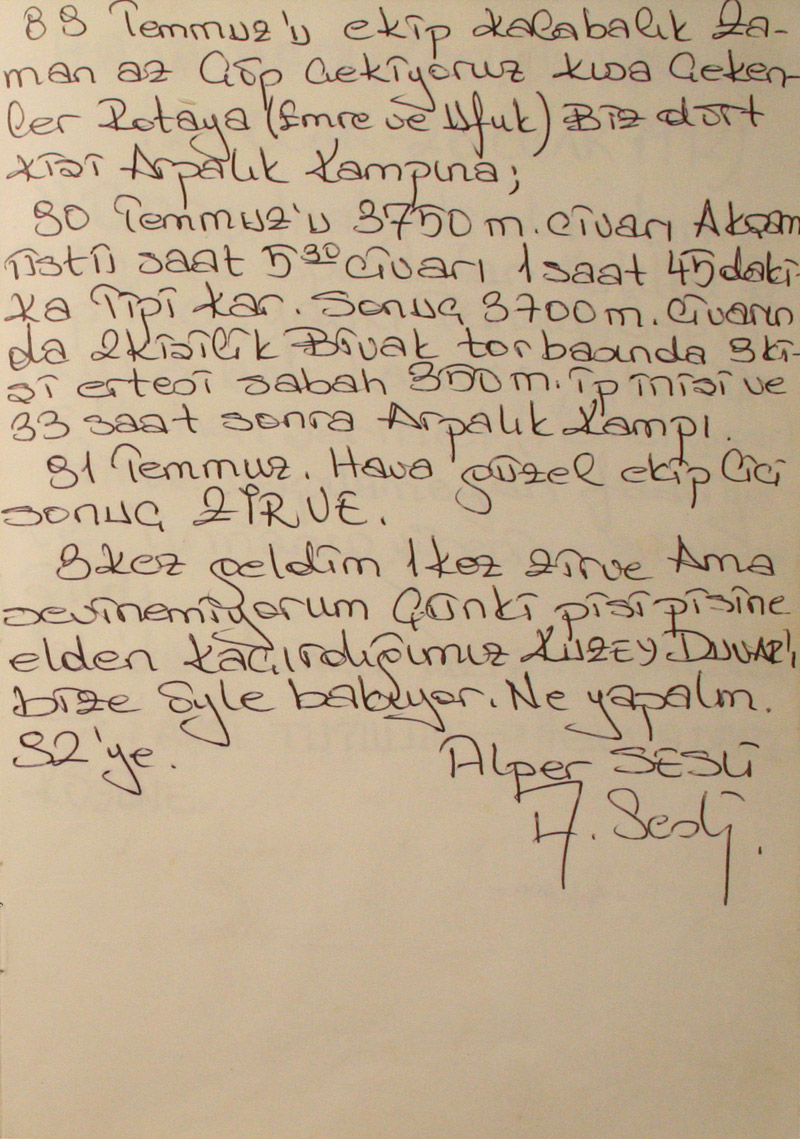 88 Temmuz'u ekip kalabalık Za-
man az Çöp Çekiyoruz kısa Çeken-
ler Rotaya (Emre ve Ufuk) Biz dört
kişi Arpalık Kampına;
90 Temmuz'u 3750 m. civarı Akşam
üstü saat 5 30 civarı 1 saat 45 daki-
ka Tipi kar. Sonuç 3700 m. civarın
da 2 kişilik Bivak torbasında 3 ki-
şi ertesi sabah 350 m. ip inişi ve
33 saat sonra Arpalık Kampı.
91 Temmuz. Hava güzel ekip Cici
sonuç ZİRVE.
3 kez geldim 1 kez zirve Ama
sevinemiyorum Çünki pisi pisine
elden kaçırdığımız KUZEY DUVARI,
bize öyle bakıyor. Ne yapalım.
92'ye.
Alper SESLİ
A. Sesli.